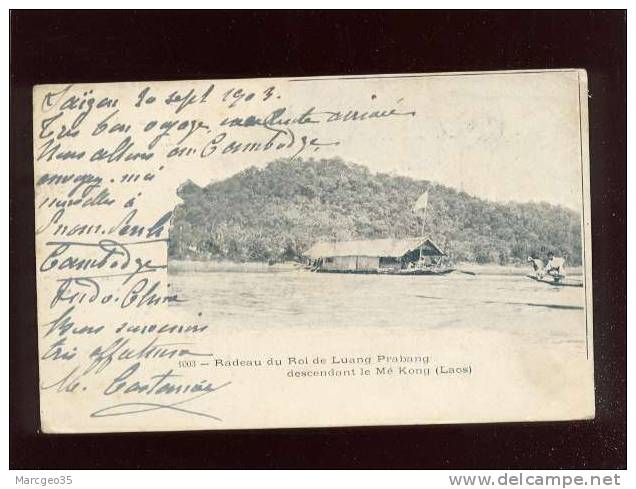 Saïgon 20 sept 1903.
Très bon voyage, arrivée
Nous allons au Cambodge.
envoyez moi
nouvelles à
Pnom-Penh
Cambodge
Indo-Chine
Mon souvenir
très affectueux
M. Castanié
1003 - Radeau du Roi de Luang Prabang
descendant le Mé Kong (Laos)
Marcgeo35
www.delcampe.net